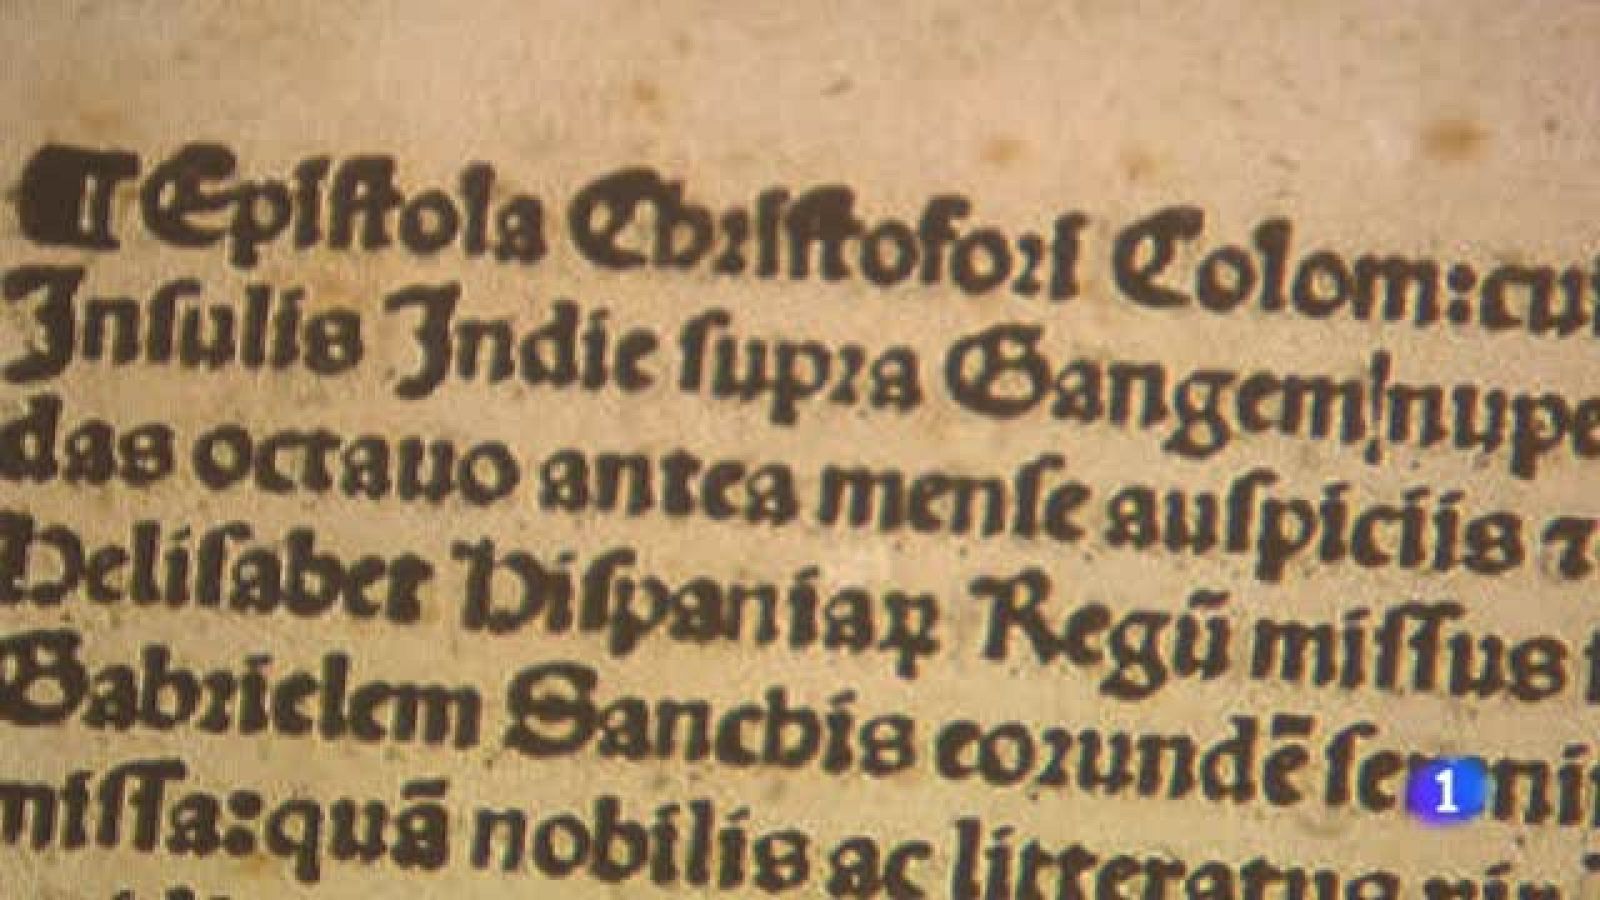 ¶ Epiſtola Chriſtofori Colom: cui
Inſulis Indie ſupra Gangem nupe
das octauo antea menſe auſpiciis ⁊
Heliſabet Hiſpaniaꝝ Regū miſſus
Gabrielem Sanchis eorundē ſereni
miſſa: quā nobilis ac litteratus vir
1